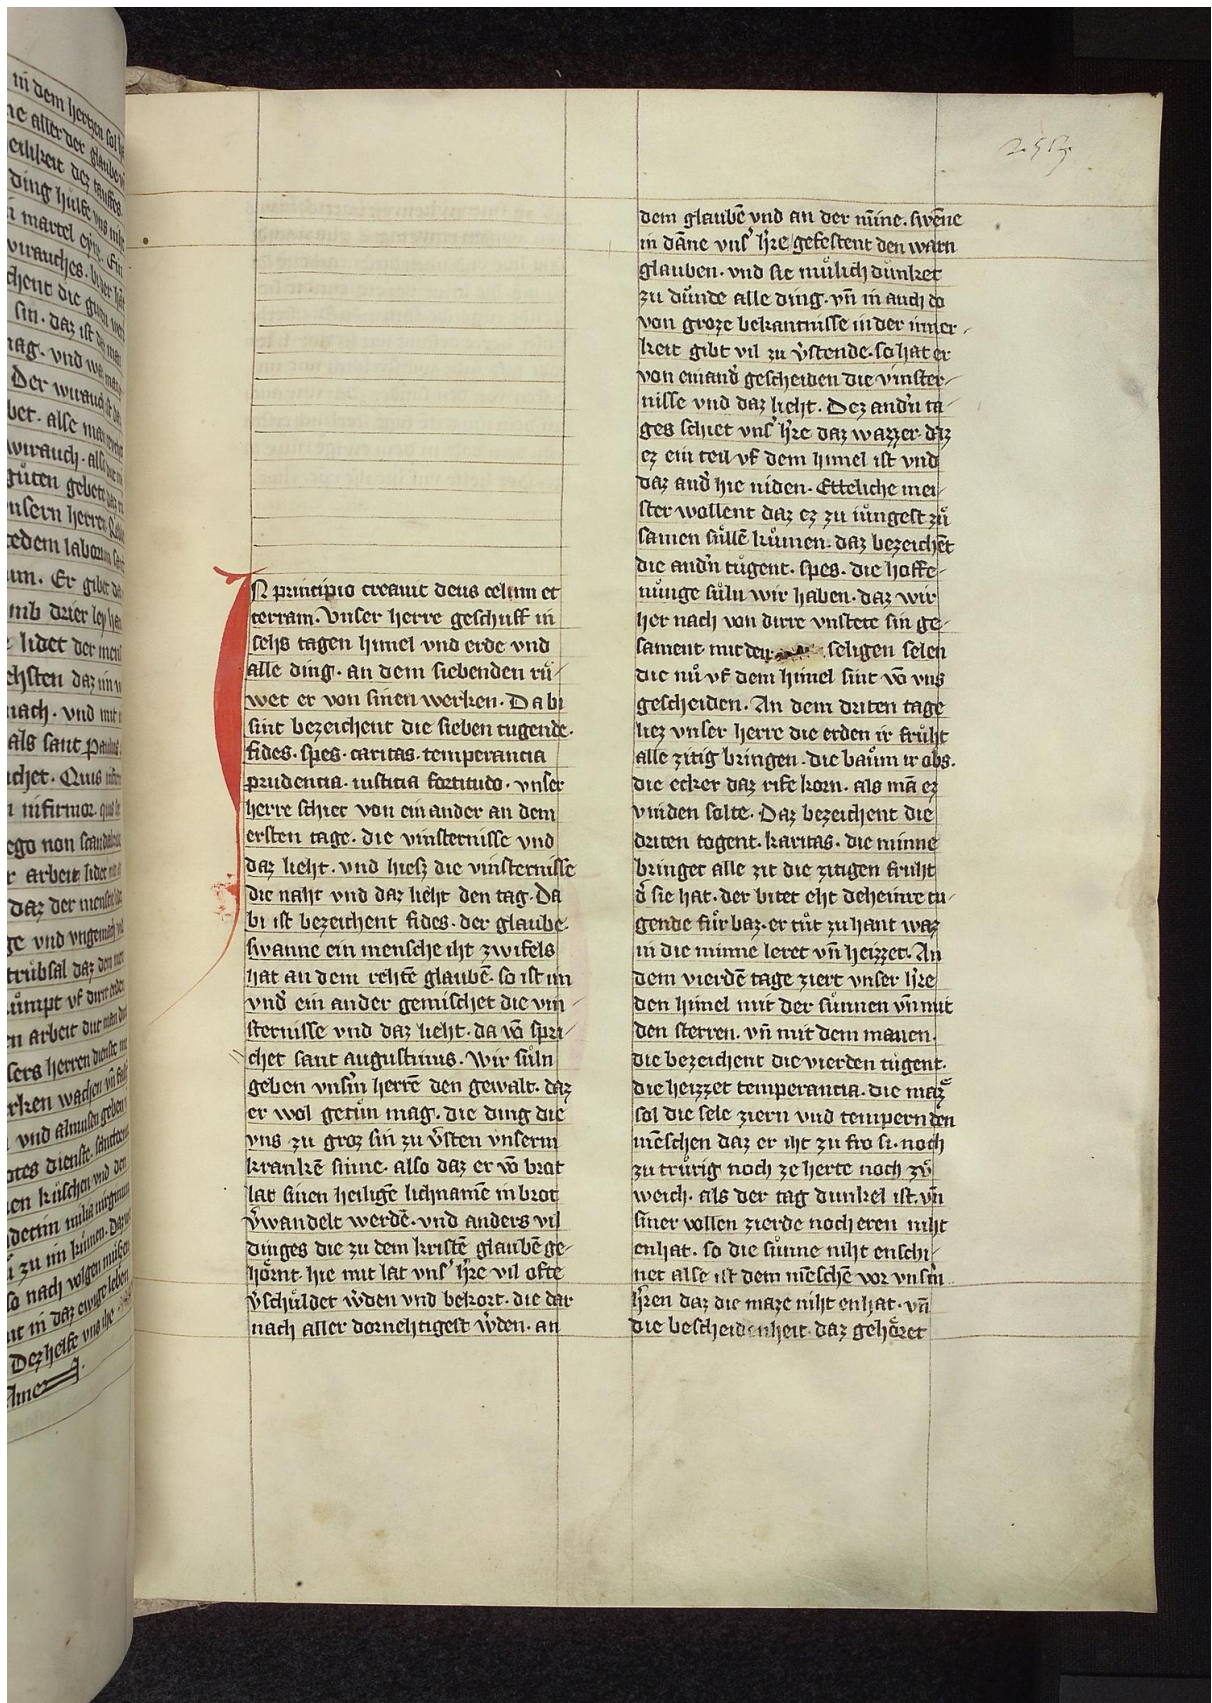 in dem hertzen sol
ne aller der glaube
eilikeit dez tauffes
ding hulfe vns
martel
wirauches
chent die
sin. daz ist
mag. vnd
Der wirauch
bet. alse
wirauch. also
guͦten gebet
nsern herren
cedem
um. Er gibt
vmb drier ley
lidet der
chsten daz
nach. vnd mit
als sant paulus
chet. Quis
infirmor.
ego non
arbeit lidet
daz der mensche
ge vnd vngemach
trubsal daz den
kumpt vf dirre erden
n arbeit
sers herren dienste
rken wachen vn̄
vnd almusen geben
otes dienste.
en kuschen vnd den
zu im kumen.
so nach volgen
nt in daz ewige leben
Dez helfe vns
Amen
2 5 3.
IN principio creauit deus celum et
terram. Vnser herre geschuff in
sehs tagen himel vnd erde vnd
alle ding. an dem siebenden ruͦ-
wet er von sinen werken. Da bi
sint bezeichent die sieben tugende.
fides. spes. caritas. temperancia
prudencia. iusticia fortitudo. vnser
herre schiet von ein ander an dem
ersten tage. die vinsternisse vnd
daz lieht. vnd hiesz die vinsternisse
die naht vnd daz lieht den tag. Da
bi ist bezeichent fides. der glaube.
swanne ein mensche iht zwifels
hat an dem rehtē glaubē. so ist im
vnd̓ ein ander gemischet die vin-
sternisse vnd daz lieht. da vō spri-
chet sant augustinus. Wir suͤln
geben vnsīn herrē den gewalt. daz
er wol getuͦn mag. die ding die
vns zu groz sin zu v̓sten vnserm
krankē sinne. also daz er vō brot
lat sinen heiligē lichnamē in brot
v̓wandelt werdē. vnd anders vil
dinges die zu dem kristē glaubē ge-
hoͤrnt. hie mit lat vns̓ h̓re vil ofte
v̓schuͦldet w̓den vnd bekort. die dar
nach aller dornehtigest w̓den. an
dem glaubē vnd an der mīne. swēne
in dāne vns̓ h̓re gefestent den warn
glauben. vnd sie muͤlich dunket
zu duͦnde alle ding. vn̄ in auch do
von groze bekantnisse in der inner-
keit gibt vil zu v̓stende. so hat er
von einand̓ gescheiden die vinster-
nisse vnd daz lieht. Dez and̓n ta-
ges schiet vns̓ h̓re daz wazzer. daz
ez ein teil vf dem himel ist vnd
daz and̓ hie niden. Etteliche mei-
ster wollent daz ez zu iuͤngest zuͦ
samen suͤllē kuͦmen. daz bezeichēt
die and̓n tuͤgent. spes. die hoffe-
nuͦnge suͤln wir haben. daz wir
her nach von dirre vnstete sin ge-
sament mit den seligen selen
die nuͦ vf dem himel sint vō vns
gescheiden. An dem driten tage
liez vnser herre die erden ir fruͤht
alle zitig bringen. die bauͦm ir obs.
die ecker daz rife korn. als mā ez
vinden solte. Daz bezeichent die
driten togent. karitas. die minne
bringet alle zit die zitigen fruht
d̓ sie hat. der bitet eht deheinre tu-
gende fuͤr baz. er tuͦt zu hant waz
in die minne leret vn̄ heizzet. An
dem vierdē tage ziert vnser h̓re
den himel mit der suͦnnen vn̄ mit
den sterren. vn̄ mit dem manen.
die bezeichent die vierden tugent.
die heizzet temperancia. die maz̓
sol die sele ziern vnd tempern den
mēschen daz er iht zu fro si. noch
zu truͤrig noch ze herte noch zuͦ
weich. als der tag dunkel ist. vn̄
siner vollen zierde noch eren niht
enhat. so die suͦnne niht enschi-
net alse ist dem mēschē vor vnsīn
h̓ren daz die maze niht enhat. vn̄
die bescheidenheit. daz gehoͤret